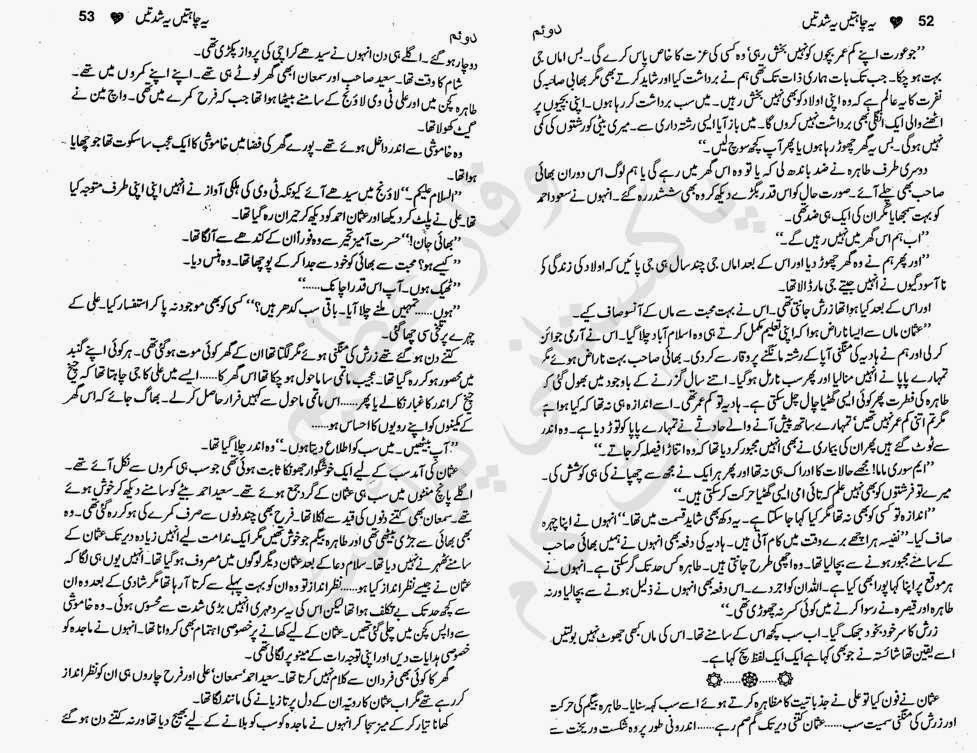 52 یہ چاہتیں یہ شدتیں
دوئم
”جو عورت اپنے کم عمر بچوں کو نہیں بخش رہی‘ وہ کسی کی عزت کا خاص پاس کرے گی۔ بس اماں جی
بہت ہو چکا۔ جب تک بات ہماری ذات تک تھی ہم نے برداشت کیا اور شاید کرتے بھی مگر بھابی صاحبہ کی
نفرت کا یہ عالم ہے کہ وہ اپنی اولاد کو بھی نہیں بخش رہیں۔ میں سب برداشت کر رہا ہوں۔ اپنی بچیوں پر
اٹھنے والی ایک انگلی بھی برداشت نہیں کروں گا۔ میں باز آیا ایسی رشتہ داری سے۔ میری بیٹی کو رشتوں کی کمی
نہیں ہوگی۔ بس یہ گھر چھوڑ رہا ہوں یا پھر آپ کچھ سوچ لیں۔“
دوسری طرف طاہرہ نے ضد باندھ لی کہ یا تو وہ اس گھر میں رہے گی یا ہم لوگ اس دوران بھائی
صاحب بھی چلے آئے۔ صورت حال کو اس قدر بگڑے دیکھ کر وہ بھی ششدر رہ گئے۔ انہوں نے سعود احمد
کو بہت سمجھایا مگر ان کی ایک ہی ضد تھی۔
”اب ہم اس گھر میں نہیں رہیں گے۔“
”اور پھر ہم نے وہ گھر چھوڑ دیا اور اس کے بعد اماں جی چند سال ہی جی پائیں کہ اولاد کی زندگی کی
نا آسودگیوں نے انہیں جیتے جی مار ڈالا تھا۔
اور اس کے بعد کیا ہوا تھا زرش جانتی تھی۔ اس نے بہت محبت سے ماں کے آنسو صاف کیے۔
”عثمان ماں سے ایسا ناراض ہوا کہ اپنی تعلیم مکمل کرتے ہی وہ اسلام آباد چلا گیا۔ اس نے آرمی جوائن
کر لی اور ہم نے ہادیہ کی منگنی آپا کے رشتہ مانگنے پر وقار سے کر دی۔ بھائی صاحب بہت ناراض ہوئے مگر
تمہارے پاپا نے انہیں منا لیا اور پھر سب نارمل ہو گیا۔ اتنے سال گزرنے کے باوجود میں بھول گئی کہ
طاہرہ کی فطرت پھر کوئی ایسی گھٹیا چال چل سکتی ہے۔ ہادیہ تو کم عمر تھی۔ اسے اندازہ ہی نہ تھا کہ کیا ہوا ہے
مگر تم اتنی کم عمر نہیں تھیں‘ تمہارے ساتھ پیش آنے والے حادثے نے تمہارے پاپا کو توڑ دیا ہے۔ وہ اندر
سے ٹوٹ گئے ہیں پھر ان کی بیماری نے بھی انہیں مجبور کر دیا تھا کہ وہ اتنا بڑا فیصلہ کر جاتے۔“
”ایم سوری ماما! مجھے حالات کا ادراک ہی نہ تھا اور پھر ہر ایک نے مجھ سے چھپانے کی ہی کوشش کی۔
میرے تو فرشتوں کو بھی نہیں علم کہ تائی امی ایسی گھٹیا حرکت کر سکتی ہیں۔“
”اندازہ تو کسی کو بھی نہ تھا مگر کیا کہا جا سکتا ہے۔ یہ دکھ بھی شاید قسمت میں تھا۔“ انہوں نے اپنا چہرہ
صاف کیا۔ ”نفیسہ ہر اچھے برے وقت میں کام آتی ہیں۔ ہادیہ کی دفعہ بھی انہوں نے ہمیں بھائی صاحب
کے سامنے مجبور ہونے سے بچا لیا تھا۔ وہ اچھی طرح جانتی ہیں۔ طاہرہ کس حد تک گر سکتی ہے۔ انہوں نے
ہر موقع پر اپنا کہا پورا بھی کیا ہے۔ اللہ ان کو اجر دے۔ اس دفعہ بھی انہوں نے ذلیل ہونے سے بچا لیا ورنہ
طاہرہ اور قیصرہ نے رسوا کرنے میں کوئی کسر نہ چھوڑی تھی۔“
زرش کا سر خود بخود جھک گیا۔ اب سب کچھ اس کے سامنے تھا۔ اس کی ماں کبھی جھوٹ نہیں بولتیں
اسے یقین تھا شائستہ نے جو بھی کہا ہے ایک ایک لفظ سچ کہا ہے۔
عثمان نے فون کیا تو علی نے جذباتیت کا مظاہرہ کرتے ہوئے اسے سب کہہ سنایا۔ طاہرہ بیگم کی حرکت
اور زرش کی منگنی سمیت سب...... عثمان کتنی دیر تک گم صم رہے...... اندرونی طور پر وہ شکست و ریخت سے
53 یہ چاہتیں یہ شدتیں
دوئم
دوچار ہو گئے۔ اگلے ہی دن انہوں نے سیدھے کراچی کی پرواز پکڑی تھی۔
شام کا وقت تھا۔ سعید صاحب اور سمعان ابھی گھر لوٹے ہی تھے۔ اپنے اپنے کمروں میں تھے۔
طاہرہ کچن میں اور علی ٹی وی لاؤنج کے سامنے بیٹھا ہوا تھا جب کہ فرح کمرے میں تھی۔ واچ مین نے
گیٹ کھولا تھا۔
وہ خاموشی سے اندر داخل ہوئے تھے۔ پورے گھر کی فضا میں خاموشی کا ایک عجب سا سکوت تھا جو چھایا
ہوا تھا۔
”السلام علیکم۔“ لاؤنج میں سیدھے آئے کیونکہ ٹی وی کی ہلکی آواز نے انہیں اپنی اپنی طرف متوجہ کیا
تھا۔ علی نے پلٹ کر دیکھا اور عثمان احمد کو دیکھ کر حیران رہ گیا تھا۔
”بھائی جان!“ حسرت آمیز تحیر سے وہ فوراً ان کے کندھے سے آ لگا تھا۔
”کیسے ہو؟ محبت سے بھائی کو خود سے جدا کر کے پوچھا تھا۔ وہ ہنس دیا۔
”ٹھیک ہوں۔ آپ اس قدر اچانک......“
”ہوں...... تمہیں ملنے چلا آیا۔ باقی سب کدھر ہیں؟“ کسی کو بھی موجود نہ پا کر استفسار کیا۔ علی کے
چہرے پر تلخی سی چھا گئی۔
کتنے دن ہو گئے تھے زرش کی منگنی ہوئے مگر لگتا تھا ان کے گھر کوئی موت ہو گئی تھی۔ ہر کوئی اپنے گنبد
میں محصور ہو کر رہ گیا تھا۔ عجیب ماتمی سا ماحول ہو چکا تھا اس گھر کا...... ایسے میں علی کا جی چاہتا تھا کہ چیخ
چیخ کر اندر کا غبار نکالے یا پھر...... اس ماتمی ماحول سے کہیں فرار حاصل کر لے۔ بھاگ جائے کہ اس گھر
کے مکینوں کو اپنے رویوں کا احساس ہو......
”آپ بیٹھیں۔ میں سب کو اطلاع دیتا ہوں۔“ وہ اندر چلا گیا تھا۔
عثمان کی آمد سب کے لیے ایک خوشگوار جھونکا ثابت ہوئی تھی جو سب ہی کمروں سے نکل آئے تھے۔
اگلے پانچ منٹوں میں سب ہی عثمان کے گرد جمع ہوئے تھے۔ سعید احمد بیٹے کو سامنے دیکھ کر خوش ہوئے
تھے۔ سمعان بھی کتنے دنوں کی قید سے نکلا تھا۔ فرح بھی چند دنوں سے صرف کمرے کی ہو کر رہ گئی تھی۔ وہ
بھی بھائی سے جڑی بیٹھی تھی اور طاہرہ بیگم جو خوش تھیں مگر ایک ندامت لیے انہیں زیادہ دیر تک عثمان کے
سامنے ٹھہرنے نہیں دیا تھا۔ سلام دعا کے بعد عثمان دیگر لوگوں میں مصروف ہو گیا تھا۔ انہیں یوں ہی لگا کہ
عثمان نے جیسے نظر انداز کیا ہو...... نظر انداز تو وہ ان کو بہت پہلے سے کرتا آ رہا تھا مگر شادی کے بعد وہ ان
سے کچھ حد تک بے تکلف ہوا تھا لیکن اس کی یہ سرد مہری انہیں بڑی شدت سے محسوس ہوئی۔ وہ خاموشی
سے واپس کچن میں چلی گئی تھیں۔ عثمان کے لیے کھانے پر خصوصی اہتمام بھی کروانا تھا۔ انہوں نے ماجدہ کو
خصوصی ہدایات دیں اور اپنی توجہ رات کے مینو پر لگا لی تھی۔
گھر کا کوئی بھی فرد ان سے کلام نہیں کرتا تھا۔ سعید احمد‘ سمعان‘ علی اور فرح چاروں ہی ان کو نظر انداز
کر رہے تھے مگر اب عثمان کا رویہ ان کے دل پر تازیانے کی مانند لگا تھا۔
کھانا تیار کر کے میز سجا کر انہوں نے ماجدہ کو سب کو بلانے کے لیے بھیج دیا تھا ورنہ کتنے دن ہو گئے